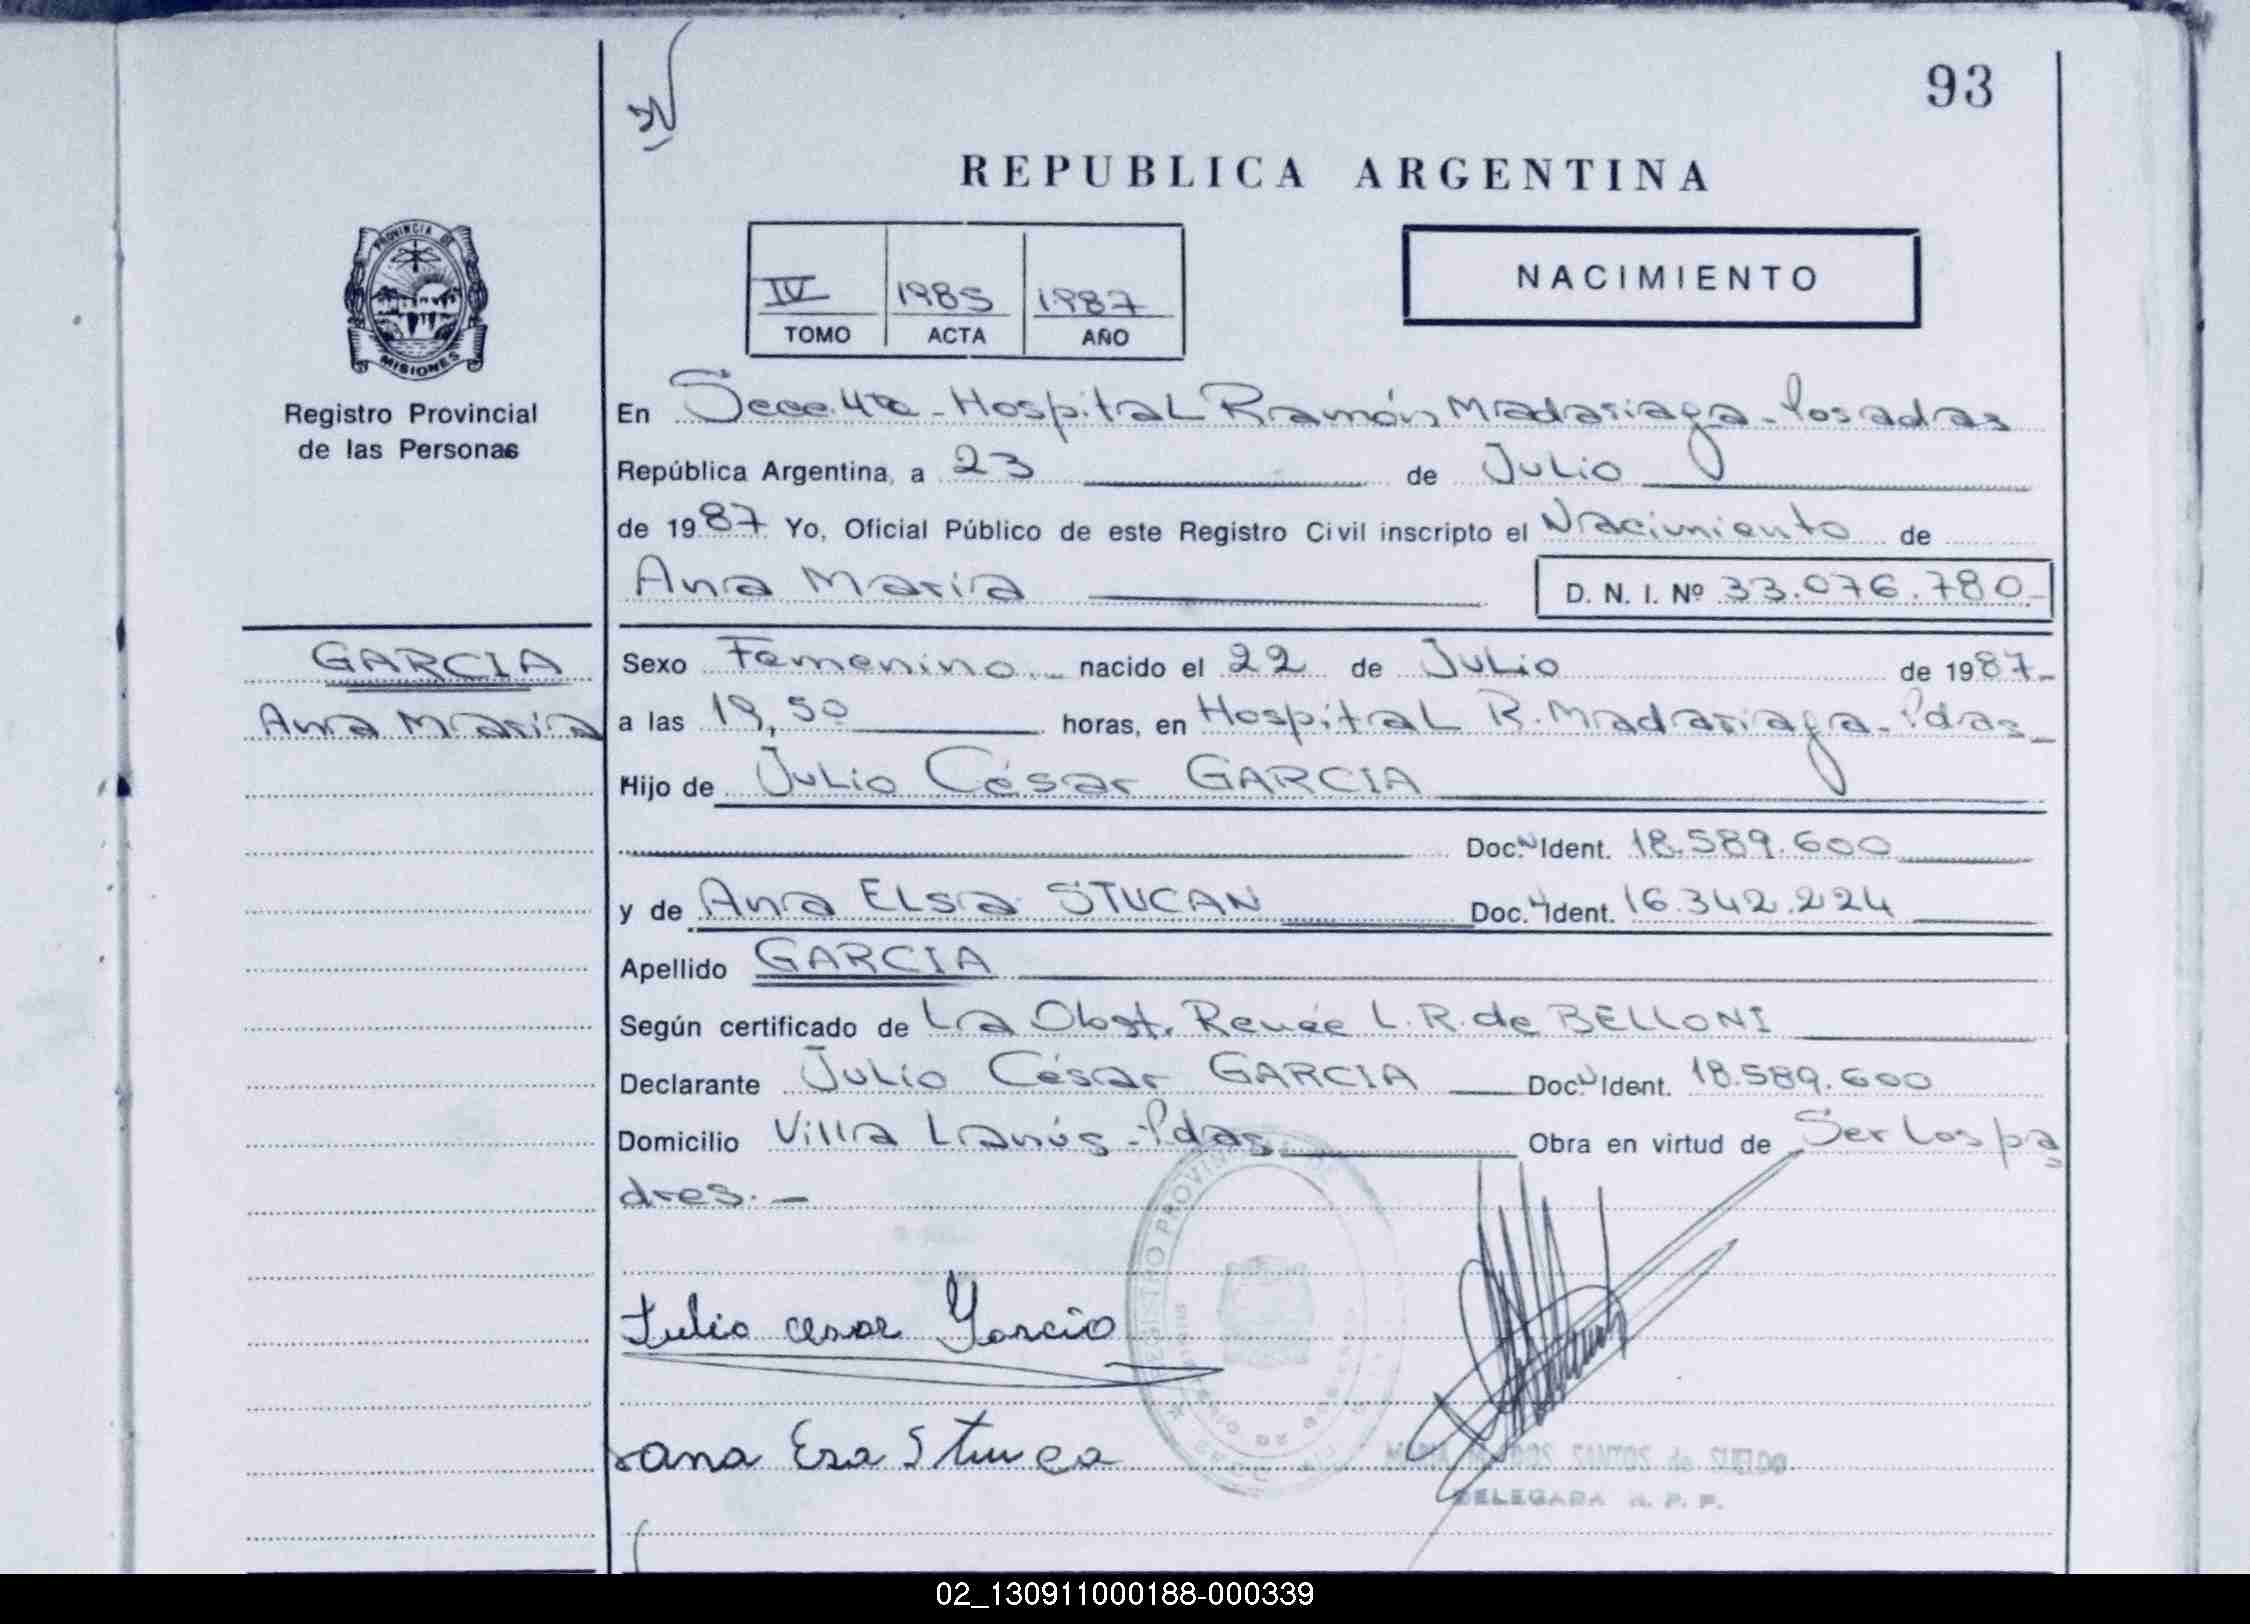 93
REPUBLICA ARGENTINA
PROVINCIA DE
MISIONES
Registro Provincial
de las Personas
IV 1985 1987
TOMO ACTA AÑO
NACIMIENTO
En Secc. 4ta - Hospital Ramón Madariaga - Posadas
República Argentina, a 23 de Julio
de 1987 Yo, Oficial Público de este Registro Civil inscripto el Nacimiento de
Ana María D. N. I. Nº 33.076.780-
GARCIA
Ana María
Sexo Femenino nacido el 22 de Julio de 1987-
a las 19,50 horas, en Hospital R. Madariaga - Pdas
Hijo de Julio César GARCIA
Doc. Ident. 18.589.600
y de Ana Elsa STUCAN Doc. Ident. 16.342.224
Apellido GARCIA
Según certificado de La Obst. Renée L. R. de BELLONI
Declarante Julio César GARCIA Doc. Ident. 18.589.600
Domicilio Villa Lanús - Pdas Obra en virtud de Ser los pa
dres. -
REGISTRO PROVINCIAL DE LAS
Julio cesar Garcia
ana Esa Stuca
SANTOS de
DELEGADA R. P. P.
02_130911000188-000339